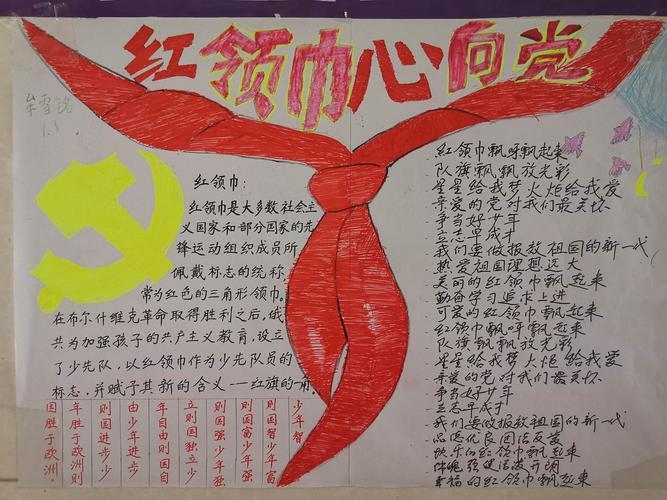 红领巾心向党
牟雪铭
1.3
红领巾:
红领巾是大多数社会主
义国家和部分国家的先
锋运动组织成员所
佩戴标志的统称,
常为红色的三角形领巾。
在布尔什维克革命取得胜利之后,俄
共为加强孩子的共产主义教育,设立
了少先队,以红领巾作为少先队员的
标志,并赋予其新的含义——红旗的一角。
少年智
则国智少年富
则国富少年强
则国强少年独
立则国独立少
年自由则国自
由少年进步
则国进步少
年胜于欧洲则
国胜于欧洲。
红领巾飘呀飘起来
队旗飘飘飘放光彩
星星给我梦火炬给我爱
亲爱的党对我们最关怀
争当好少年
立志早成才
我们要做报效祖国的新一代
热爱祖国理想远大
美丽的红领巾飘起来
勤奋学习追求上进
可爱的红领巾飘起来
红领巾飘呀飘起来
队旗飘飘飘放光彩
星星给我梦火炬给我爱
亲爱的党对我们最关怀
争当好少年
立志早成才
我们要做报效祖国的新一代
品德优良团结友爱
快乐的红领巾飘起来
体魄强健活泼开朗
幸福的红领巾飘起来